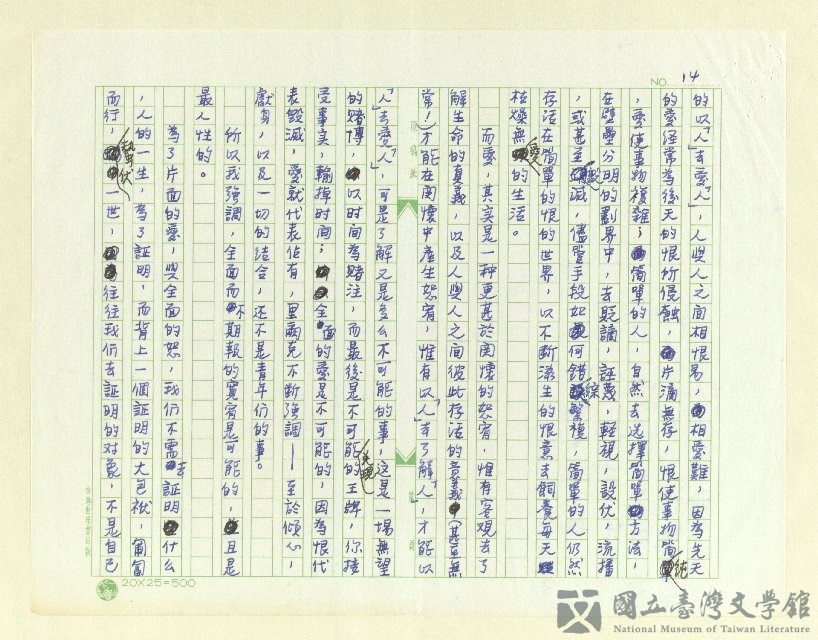 NO. 14
的以「人」去愛「人」，人與人之間相恨易，相愛難，因為先天
的愛經常為後天的恨所侵蝕，片滴無存，恨使事物簡純
，愛使事物複雜；簡單的人，自然去選擇簡單方法，
在壁壘分明的劃界中，去貶謫，誣蔑，輕視，設伏，流播
，或甚至滅，儘管手段如何錯綜繁複，簡單的人仍然
存活在簡單的恨的世界，以不斷滋生的恨意去飼養每天
枯燥無愛的生活。
而愛，其實是一種更甚於関懷的恕宥，惟有客观去了
解生命的真義，以及人與人之间彼此存活的意義（甚至無
常！）才能在関懷中產生恕宥，惟有以「人」去了解「人」，才能以
「人」去愛「人」，可是了解又是多么不可能的事，这是一場無望
的賭博，以时间為賭注，而最後是不可能的王牌，你接
受事实，輸掉时间；全面的愛是不可能的，因為恨代
表毀滅，愛就代表佔有，里爾克不斷強調——至於傾心，
獻身，以及一切的结合，还不是青年们的事。
所以我強調，全面而不期報的寬宥是可能的，且是
最人性的。
為了片面的愛，與全面的恕，我们不需去証明什么
，人的一生，為了証明，而背上一個証明的大包袱，匍匐
而行，蟄伏一世，往往我们去証明的对象，不是自己
20X25=500
國立臺灣文學館
National Museum of Taiwan Literature